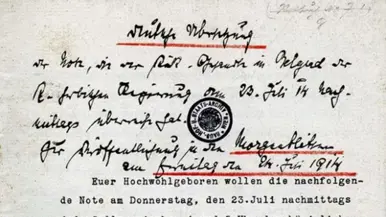 Deutsche Übersetzung
der Note, die der k.u.k. Gesandte in Belgrad der
K. Serbischen Regierung am 23. Juli 14 nach-
mittags überreicht hat.
Zur Veröffentlichung in den Morgenblättern
am Freitag den 24. Juli 1914
Euer Hochwohlgeboren wollen die nachfolgen-
de Note am Donnerstag, den 23.Juli nachmittags